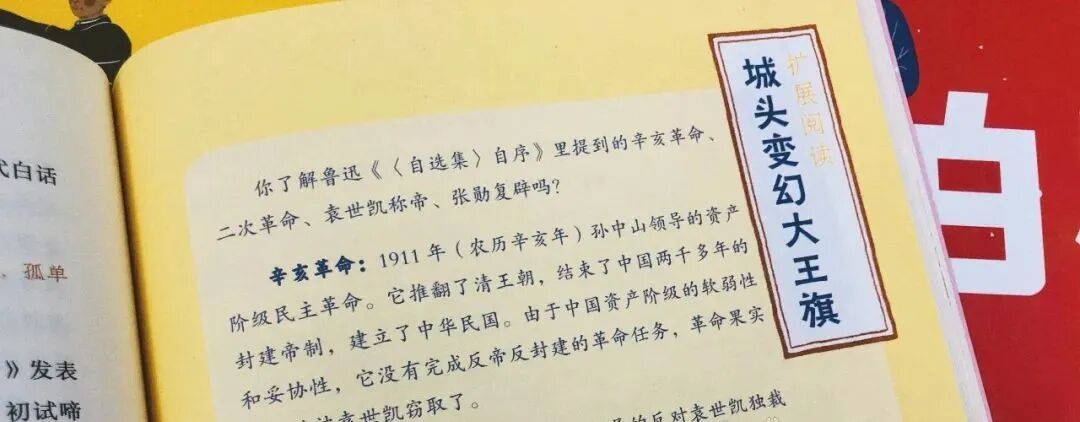 代白话
，孤单
》发表
初试啼
扩展阅读
城头变幻大王旗
你了解鲁迅《〈自选集〉自序》里提到的辛亥革命、
二次革命、袁世凯称帝、张勋复辟吗？
辛亥革命：1911 年（农历辛亥年）孙中山领导的资产
阶级民主革命。它推翻了清王朝，结束了中国两千多年的
封建帝制，建立了中华民国。由于中国资产阶级的软弱性
和妥协性，它没有完成反帝反封建的革命任务，革命果实
被袁世凯窃取了。
的反对袁世凯独裁